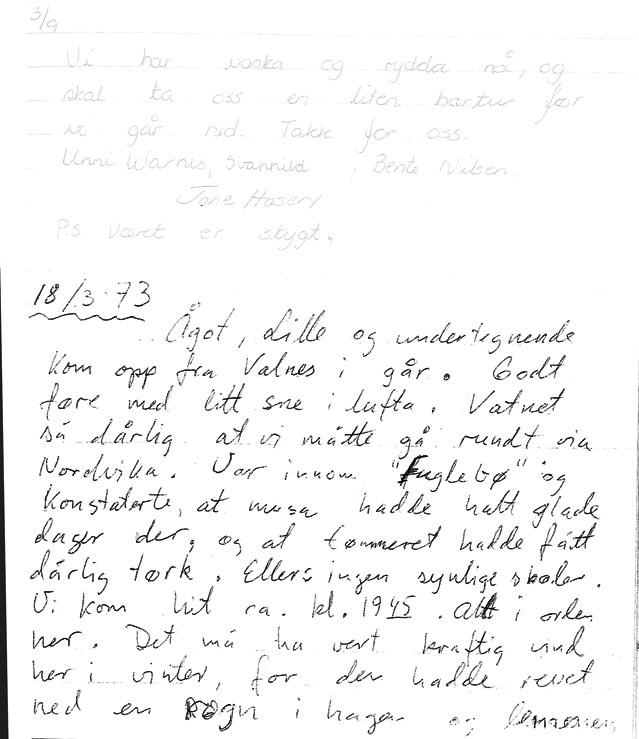 3/9
Vi har vaska og rydda nå, og
skal ta oss en liten bartur før
vi går ned. Takk for oss.
Unni Warnis, Svannhild, Bente Nilsen.
Tone Hasen
P.s. været er stygt.
18/3-73
Ågot, Lille og undertegnende
kom opp fra Valnes i går. Godt
føre med litt sne i lufta. Vatnet
så dårlig at vi måtte gå rundt via
Nordvika. Var innom "Fuglebø" og
konstaterte, at musa hadde hatt glade
dager der, og at tømmeret hadde fått
dårlig tørk. Ellers ingen synlige skader.
Vi kom hit ca. kl. 1945. Alt i orden
her. Det må ha vært kraftig vind
her i vinter, for den hadde revet
ned en rogn i hagen og